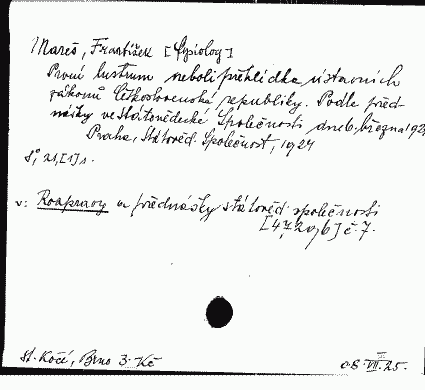 Mareš, František [fysiolog]
První lustrum neboli přehlídka ústavních
zákonů Československé republiky. Podle před-
nášky ve Státovědecké Společnosti dne 6. března 192
Praha, Státověd. Společnost, 1924
8°, 21, [1] s.
v: Rozpravy a přednášky státověd. společnosti
č. 7.
st. Kočí, Brno 3 Kč
08. VII. 25.